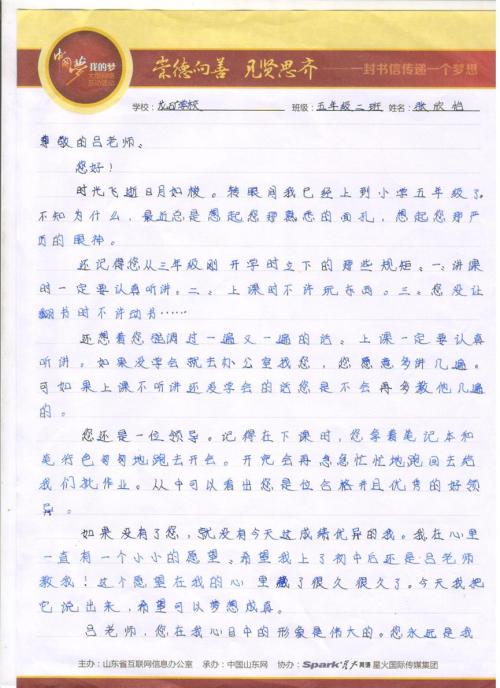 中国梦 我的梦
大型网络
互动活动
崇德向善 见贤思齐 一封书信传递一个梦想
学校：龙矿学校 班级：五年级二班 姓名：张欣怡
尊敬的吕老师。
您好！
时光飞逝日月如梭。转眼间我已经上到小学五年级了。
不知为什么，最近总是想起您那熟悉的面孔，想起您那严
厉的眼神。
还记得您从三年级刚开学时立下的那些规矩。一、讲课
时一定要认真听讲。二、上课时不许玩东西。三、您没让
翻书时不许动书……
还想着您强调过一遍又一遍的话。上课一定要认真
听讲。如果没学会就去办公室找您，您愿意多讲几遍。
可如果上课不听讲还没学会的话您是不会再多教他几遍
的。
您还是一位领导。记得在下课时，您拿着笔记本和
笔行色匆匆地跑去开会。开完会再急急忙忙地跑回去给
我们批作业。从中可以看出您是位合格并且优秀的好领
导。
如果没有了您，就没有今天这成绩优异的我。我在心里
一直有一个小小的愿望。希望我上了初中后还是吕老师
教我！这个愿望在我的心里藏了很久很久了。今天我把
它说出来，希望可以梦想成真。
吕老师，您在我心目中的形象是伟大的。您永远是我
主办：山东省互联网信息办公室 承办：中国山东网 协办：Spark星火英语 星火国际传媒集团